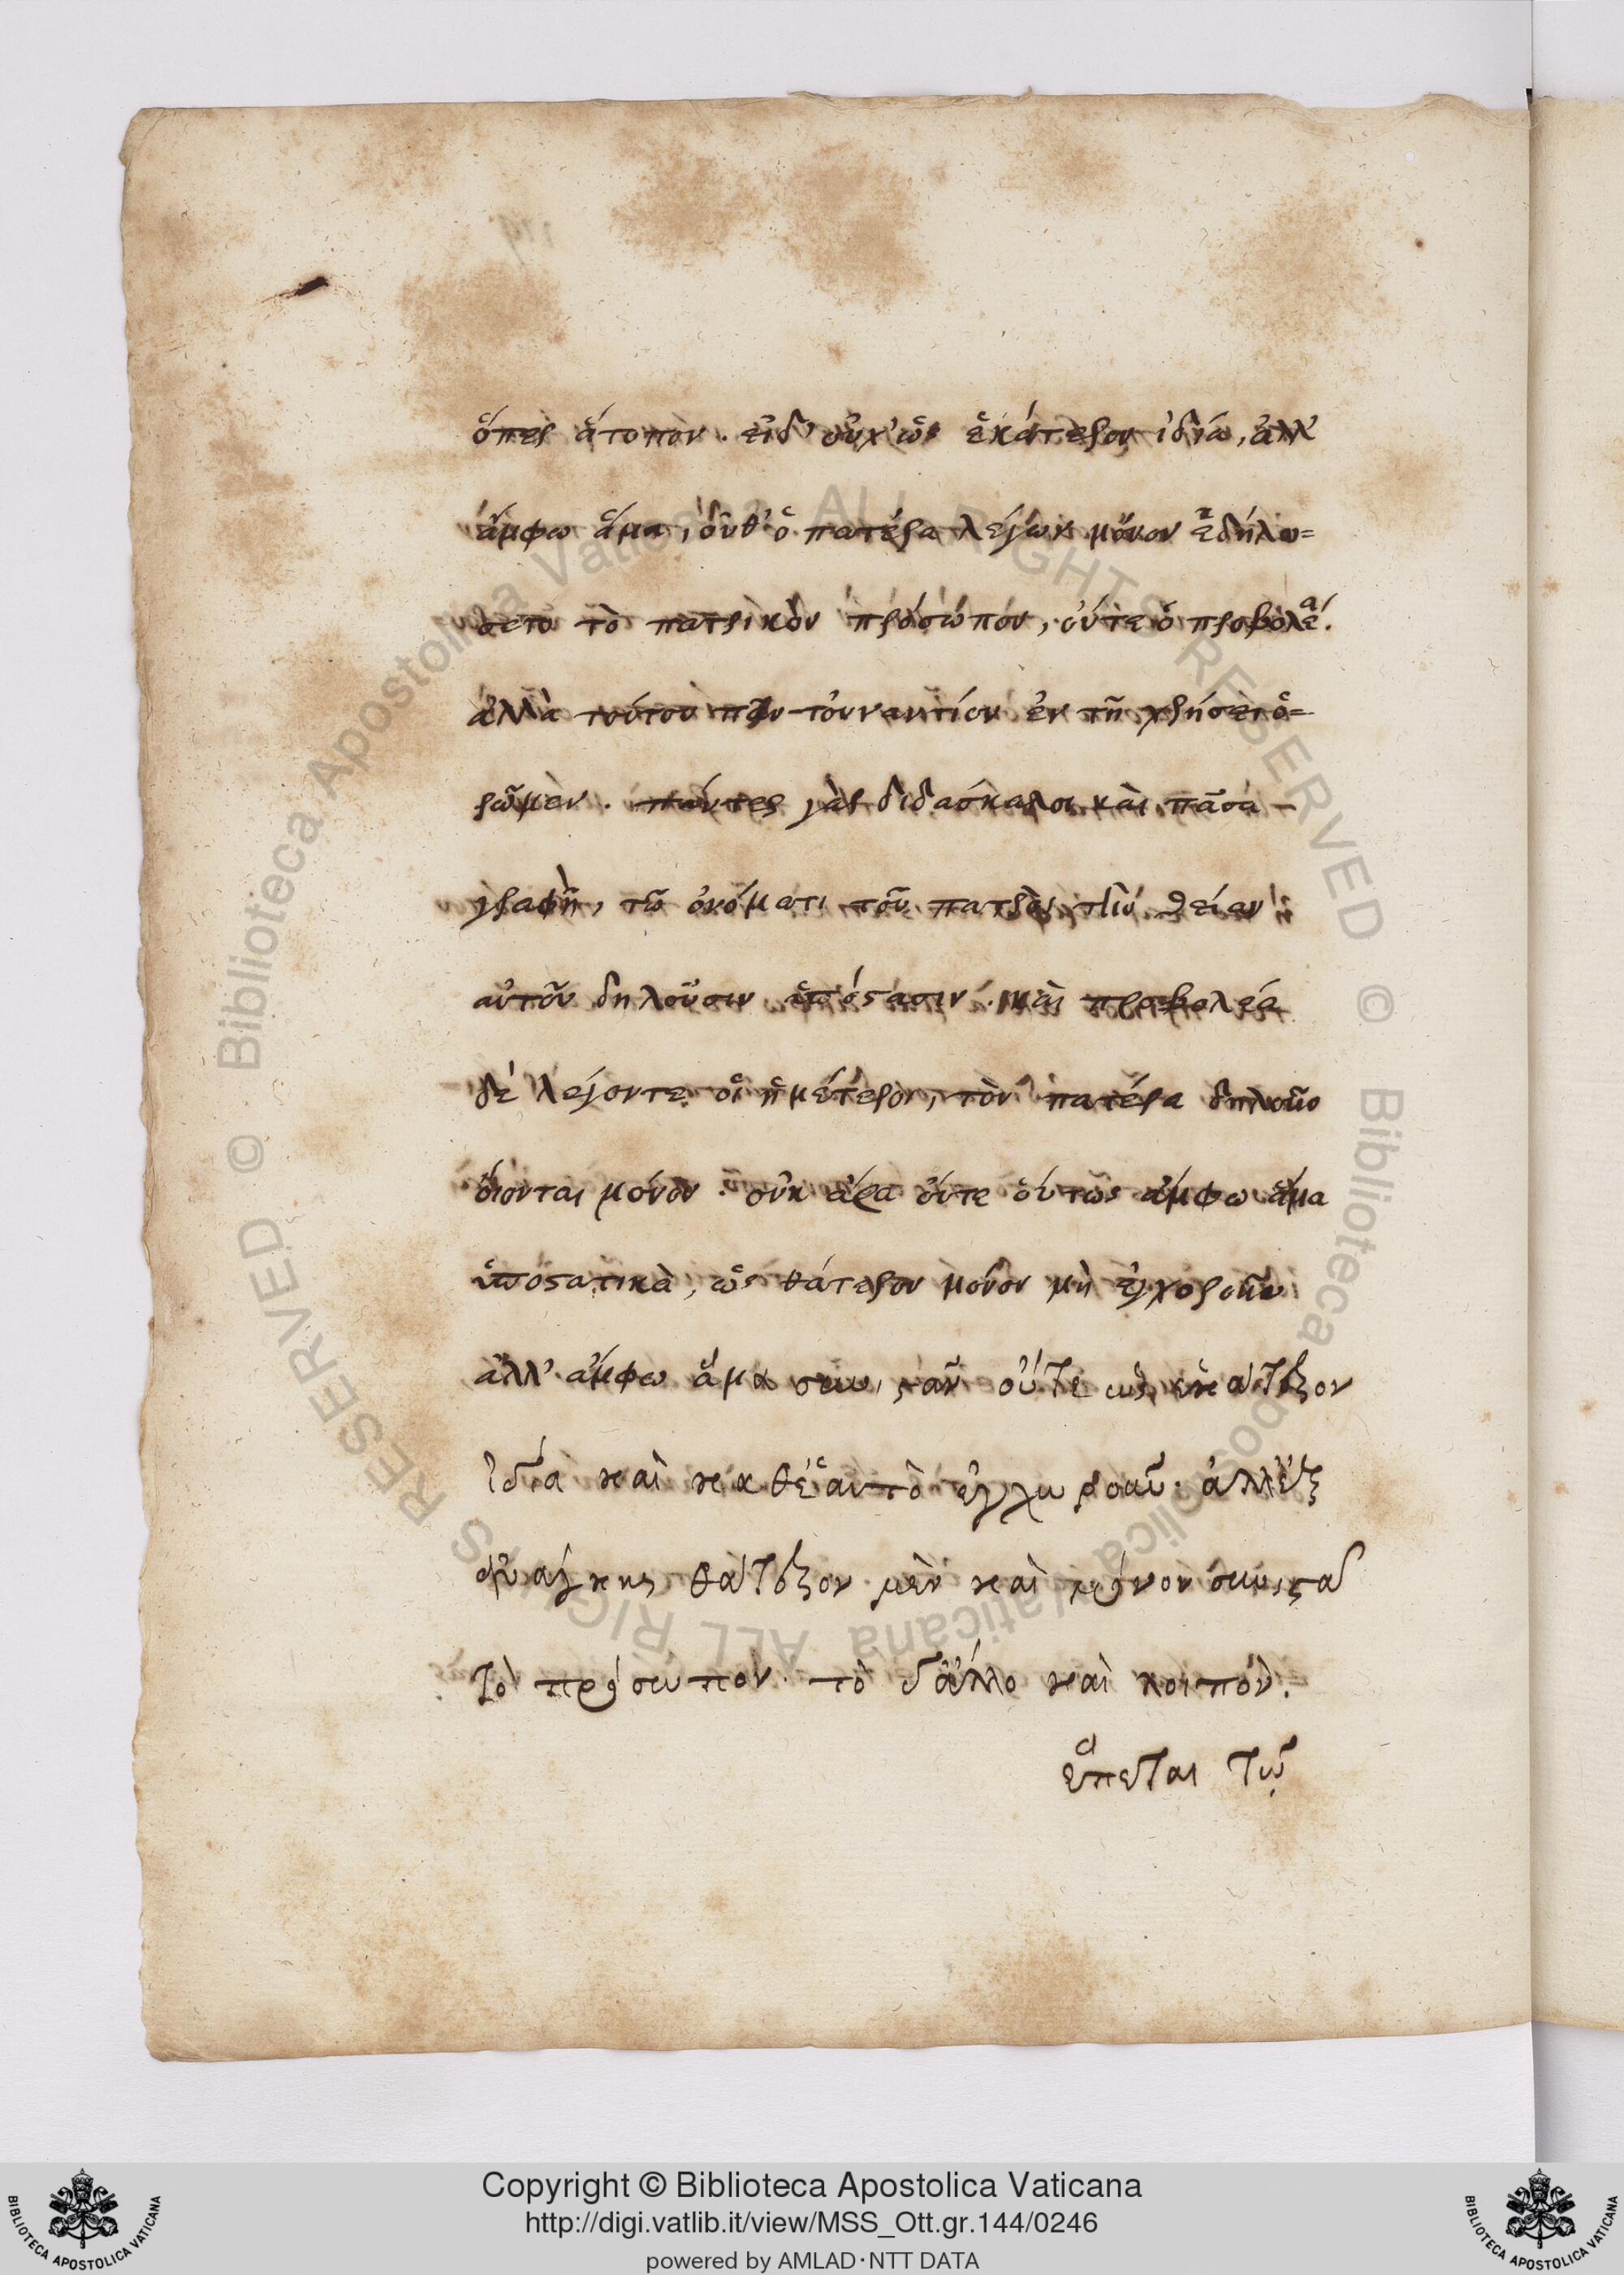 ὅπερ ἄτοπον. εἰδ' οὐχ' ὡς ἑκάτερον ἰδία, ἀλλ'
ἄμφω ἅμα, οὔθ' ὁ πατέρα λέγων μόνον ἐδήλου=
το τὸ πατρικὸν πρόσωπον, οὔτε ὁ προβολέα.
ἀλλὰ τούτου πᾶν τοὐναντίον ἐν τῇ χρήσει ὁ=
ρῶμεν. πάντες γὰρ διδάσκαλοι καὶ πᾶσα
γραφὴ, τῶ ὀνόματι τοῦ πατρὸς τὴν θείαν
αὐτοῦ δηλοῦσιν ὑπόστασιν. καὶ προβολέα
δὲ λέγοντε οἱ ἡμέτεροι, τὸν πατέρα δηλοῦν
οἴονται μόνον. οὐκ ἄρα οὔτε οὕτως ἄμφω ἅμα
ὑποστατικὰ, ὡς θάτερον μόνον μὴ ἐγχωροῦν
ἀλλ' ἄμφω ἅμα συνιστᾶν οὔτε ὡς ἑκάτερον
ἰδία καὶ καθ' ἑαυτὸ ἐγχωροῦν. ἀλλ' ἐξ
ἀνάγκης θάτερον μὲν καὶ μόνον συνιστᾶ
τὸ πρόσωπον. τὸ δ' ἄλλο καὶ λοιπόν.
ἕπεται τῷ
Copyright © Biblioteca Apostolica Vaticana
http://digi.vatlib.it/view/MSS_Ott.gr.144/0246
powered by AMLAD·NTT DATA
BIBLIOTECA APOSTOLICA VATICANA
BIBLIOTECA APOSTOLICA VATICANA
© Biblioteca Apostolica Vaticana ALL RIGHTS RESERVED
© Biblioteca Apostolica Vaticana ALL RIGHTS RESERVED